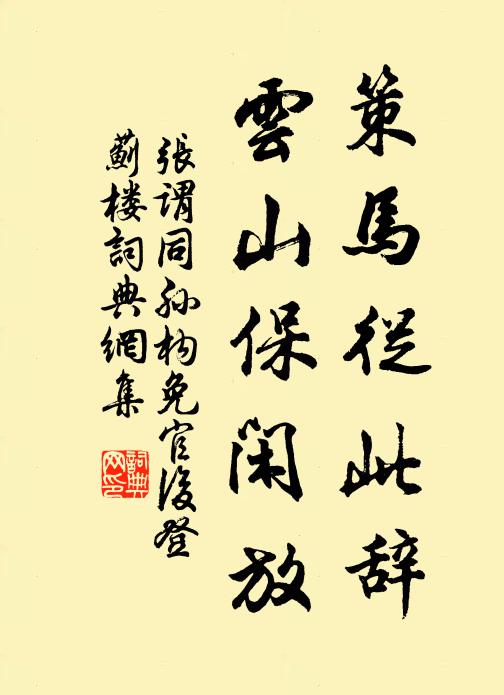 策馬從此辞
雲山保闲放
張謂同孙构免官後登
薊楼詞典網集
詞典
网印